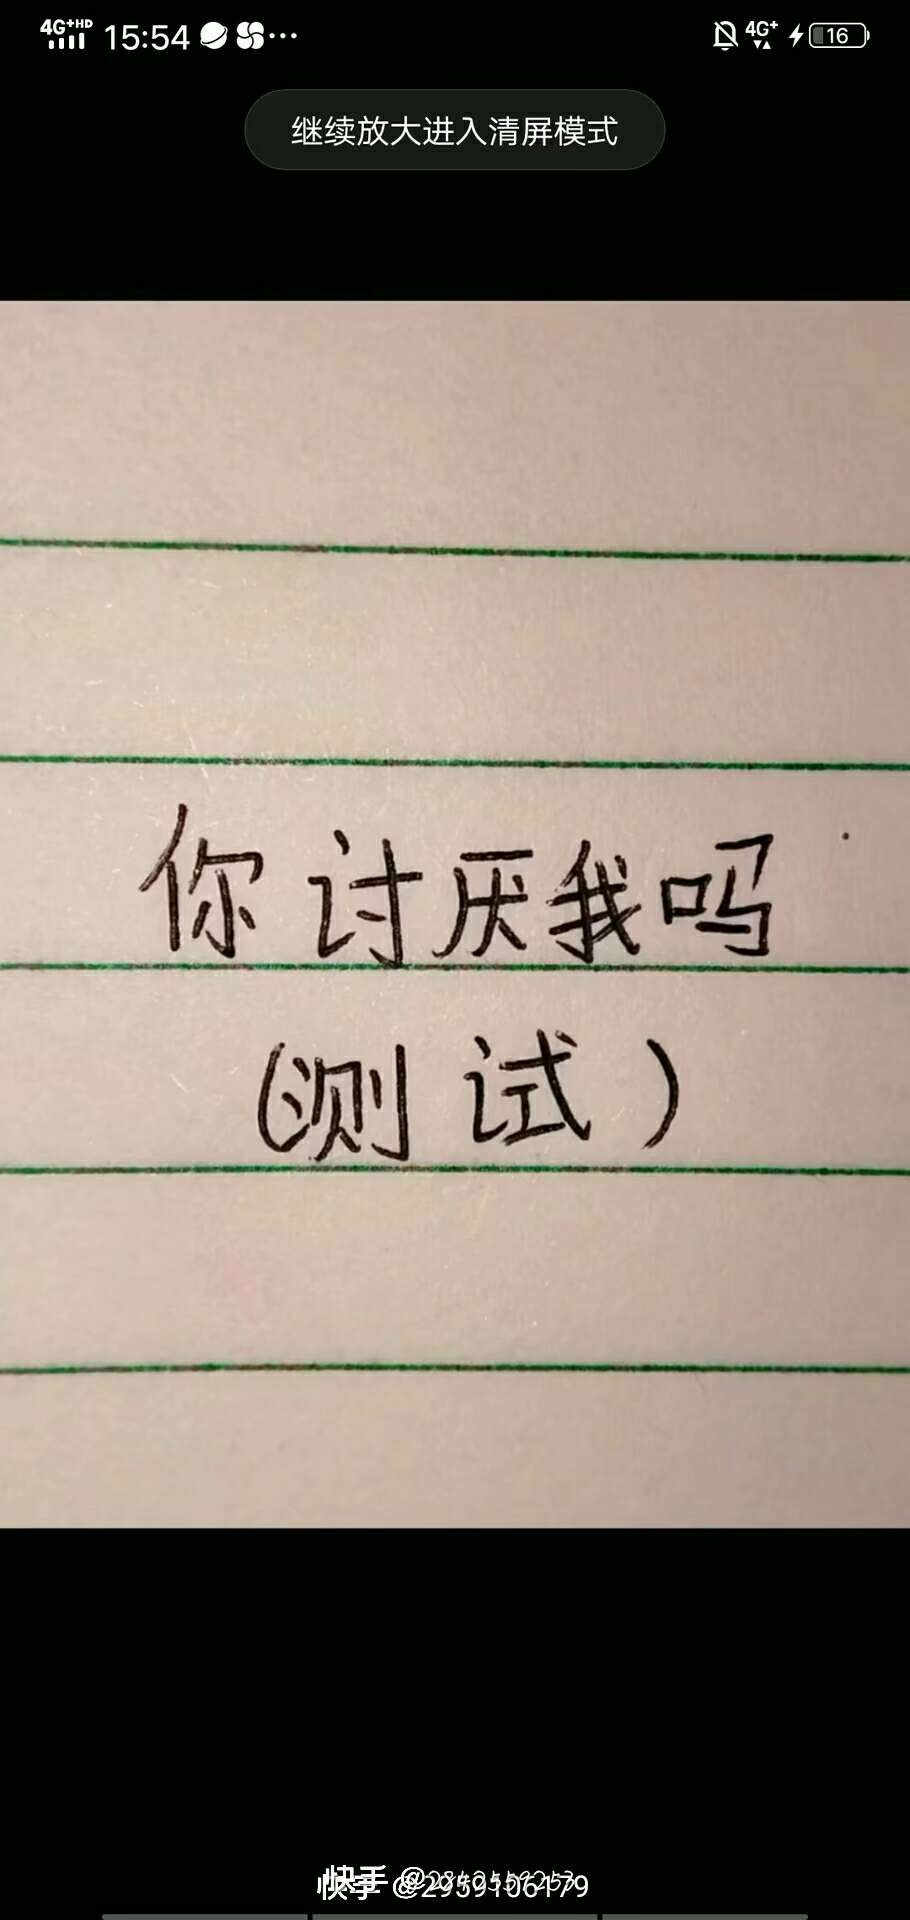 4G+HD 15:54 4G+ 16
继续放大进入清屏模式
你讨厌我吗
(测试)
快手
快手 @2959106179